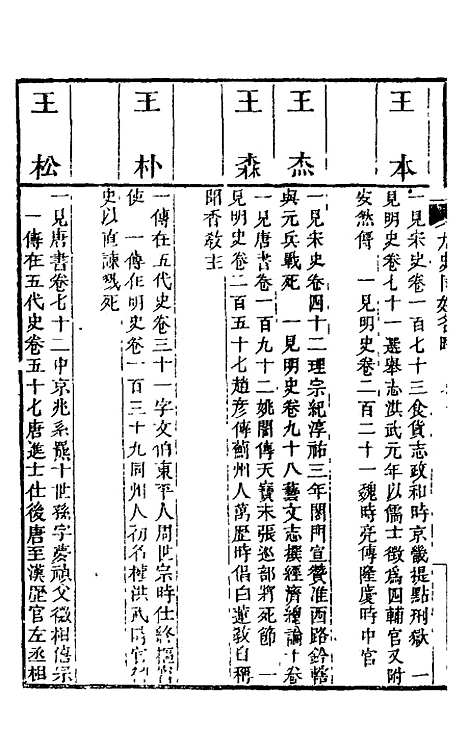 王本
一見宋史卷一百七十三食貨志政和時京畿提點刑獄　一
見明史卷七十一選舉志洪武元年以儒士徵為四輔官又附
安然傳　一見明史卷二百二十一魏時亮傳隆慶時中官
王杰
一見宋史卷四十二理宗紀淳祐三年閤門宣贊淮西路鈐轄
與元兵戰死　一見明史卷九十八藝文志撰經濟總論十卷
王森
一見唐書卷一百九十二姚誾傳天寶末張巡部將死節　一
見明史卷二百五十七趙彥傳薊州人萬歷時倡白蓮教自稱
聞香教主
王朴
一傳在五代史卷三十一字文伯東平人周世宗時仕終樞密
使　一傳在明史卷一百三十九同州人初名權洪武時官
史以直諫戮死
王松
一見唐書卷七十二中京兆系羆十世孫字夢禎父徽相僖宗
一傳在五代史卷五十七唐進士仕後唐至漢歷官左丞相